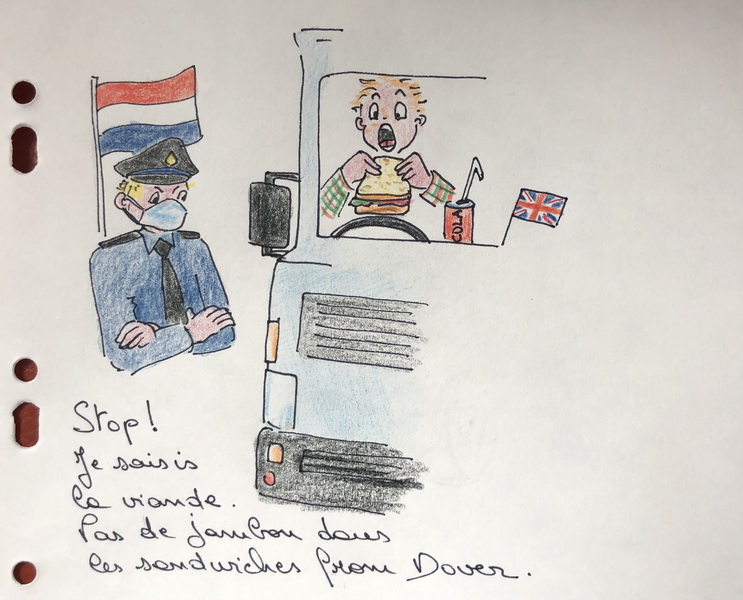 COLA
Stop!
Je saisis
la viande.
Pas de jambon dans
les sandwiches from Dover.